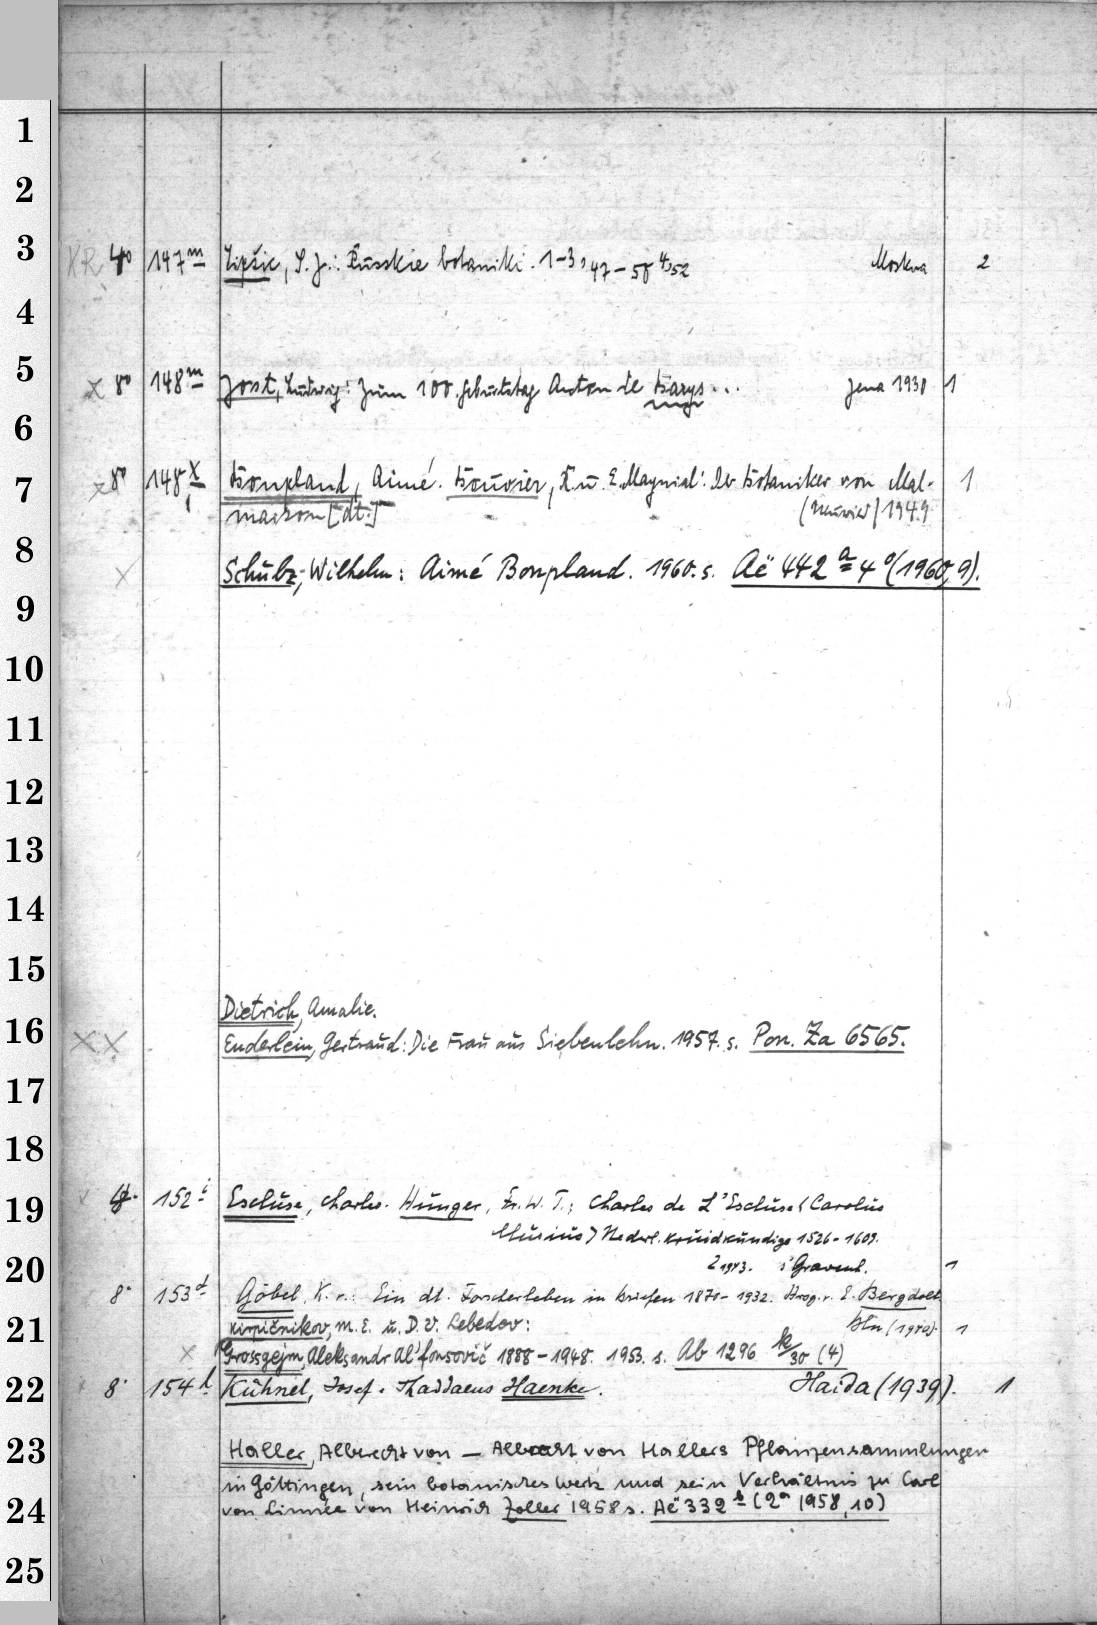 1
2
3 KR 4° 147 m Lipšic, S. J.: Russkie botaniki. 1-3, 47-50 4,52 Moskva 2
4
5 x 8° 148 m Jost, Ludwig: Zum 100. Geburtstag Anton de Barys... Jena 1930 1
6
7 x 8° 148 x Bonpland, Aimé. Bouvier, R. u. E. Maynial: Der Botaniker von Mal-
1 maison [dt.] (Neuwied) 1949 1
8 x Schulz, Wilhelm: Aimé Bonpland. 1960. s. Aë 442 a 4° (1960, 9).
9
10
11
12
13
14
15
Dietrich, Amalie.
16 xx Enderlein, Gertraud: Die Frau aus Siebenlehn. 1957. s. Pon. Za 6565.
17
18
19 152 i Escluse, Charles. Hunger, Fr. W. T.: Charles de L'Escluse (Carolus
Clusius) Nederl. kruidkundige 1526-1609.
20 2 1943. s'Gravenh. 1
8° 153 d Göbel, K. v.: Ein dt. Forscherleben in Briefen 1870-1932. Hrsg. v. E. Bergdolt
Bln (1940). 1
21 Kirpičnikov, M. E. u. D. V. Lebedov:
x Grossgejm, Aleksandr Al'fonsovič 1888-1948. 1953. s. Ab 1296 k/30 (4)
22 8° 154 l Kühnel, Josef. Thaddaeus Haenke. Haida (1939). 1
23 Haller, Albrecht von - Albrecht von Hallers Pflanzensammlungen
in Göttingen, sein botanisches Werk und sein Verhältnis zu Carl
24 von Linnée von Heinrich Zoller 1958 s. Aë 332 b (2° 1958, 10)
25